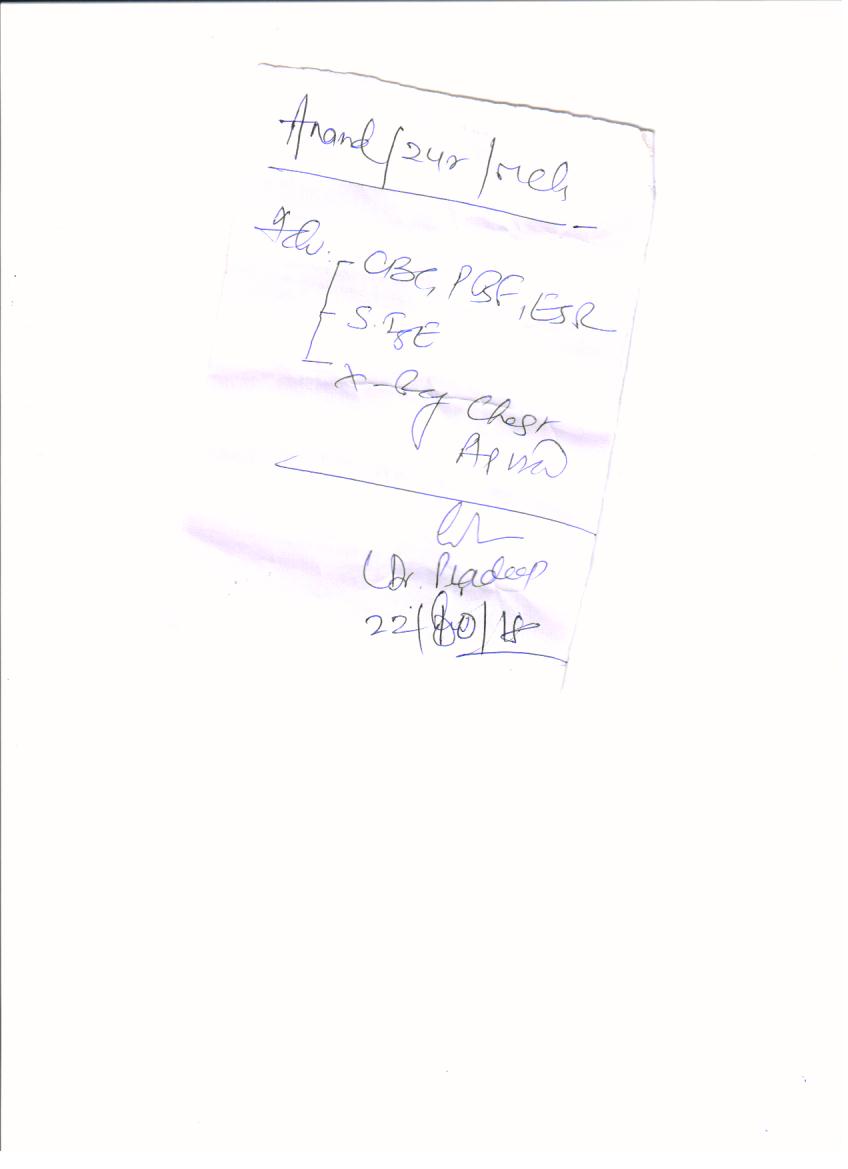 Anand/24y/Male
Adv:-
CBC, PBF, ESR
S. IgE
X-Ray Chest
AP view
(Dr. Pradeep
22/10/18